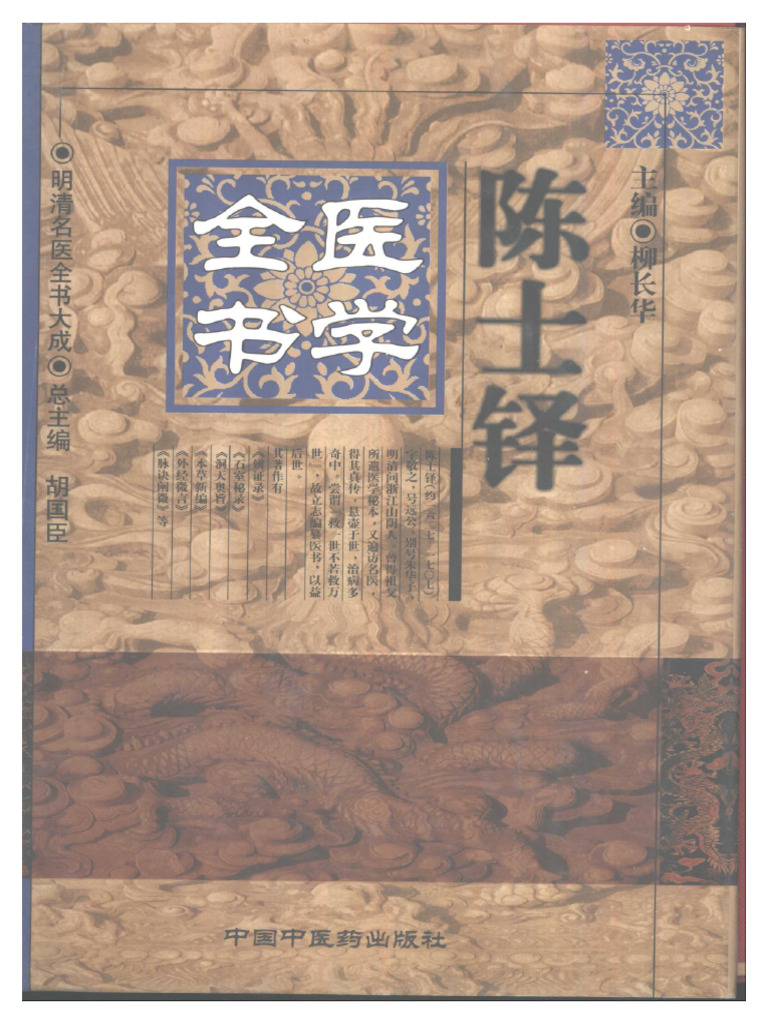 主编◉柳长华
陈士铎
医学
全书
陈士铎（约一六二七～一七〇七）
字敬之，号远公，别号朱华子。
明清间浙江山阴人。曾得祖父
所遗医学秘本，又遍访名医，
得其真传。悬壶于世，治病多
奇中。尝谓“救一世不若救万
世”，故立志编纂医书，以益
后世。
其著作有
《辨证录》
《石室秘录》
《洞天奥旨》
《本草新编》
《外经微言》
《脉诀阐微》等
◉明清名医全书大成◉总主编 胡国臣
中国中医药出版社